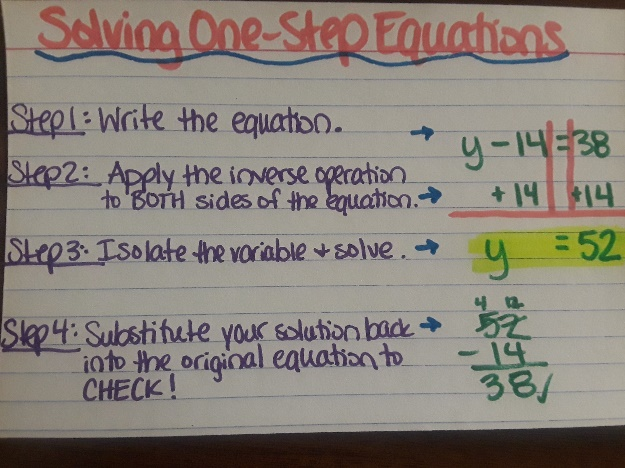 Solving One-Step Equations
Step1: Write the equation. → y - 14 = 38
Step2: Apply the inverse operation
to BOTH sides of the equation. → + 14 +14
Step3: Isolate the variable + solve. → y = 52
4 12
Step4: Substitute your solution back → 52
into the original equation to - 14
CHECK! 38✓